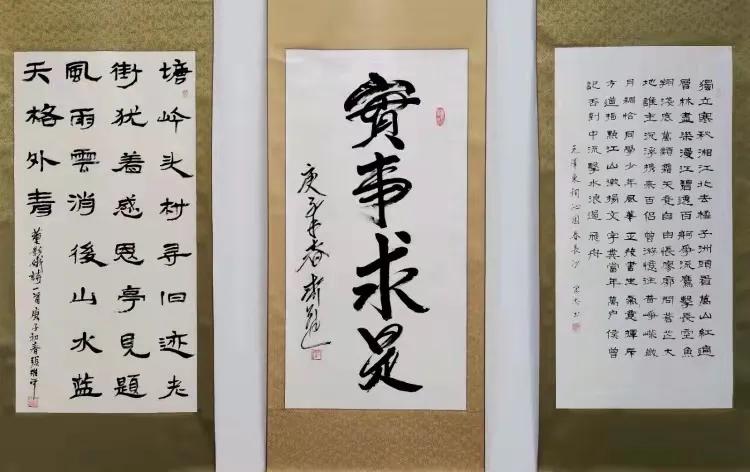 獨立寒秋湘江北去橘子洲頭看萬山紅遍
層林盡染漫江碧透百舸爭流鷹擊長空魚
翔淺底萬類霜天競自由悵寥廓問蒼茫大
地誰主沉浮携來百侶曾游憶往昔崢嶸歲
月稠恰同學少年風華正茂書生氣意揮斥
方遒指點江山激揚文字糞當年萬户侯曾
記否到中流擊水浪遏飛舟
毛澤東詞沁園春長沙
實事求是
庚子年春
塘岭头村寻旧迹老
街犹着感恩亭見題
風雨雲消後山水蓝
天格外青
詩一首庚子初春